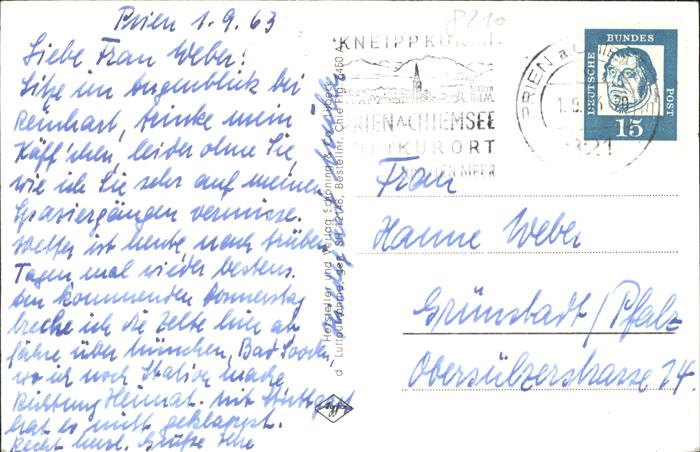 Prien 1.9.63
Liebe Frau Weber!
Sitze im Augenblick bei
Reinhart, trinke mein
Käff'chen, leider ohne Sie,
wie ich Sie sehr auf meinen
Spaziergängen vermisse.
Wetter ist heute nach trüben
Tagen mal wieder bestens.
Am kommenden Donnerstag
breche ich die Zelte hier ab
fahre über München, Bad Sooden,
wo ich noch Station mache
Richtung Heimat. Mit Stuttgart
hat es nicht geklappt.
Recht herzl. Grüße Ihre
Hersteller und Verlag Schöning &
d Luftaufnahme gez. Bestellnr. Chie
8210
KNEIPPKURORT
PRIEN A CHIEMSEE
LUFTKURORT
PRIEN a. CHIEMSEE
1.9.
DEUTSCHE BUNDESPOST
15
Frau
Hanne Weber
Grünstadt/Pfalz
Obersülzerstrasse 24.